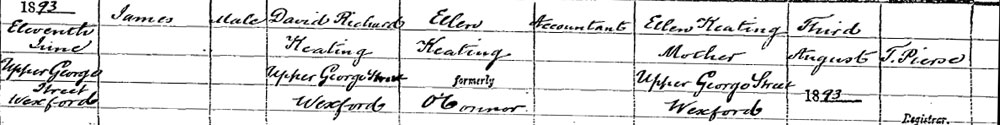 1893 James Male David Richard Ellen Accountant Ellen Keating Third
Eleventh June Keating Keating Mother August T. Pierse
Upper George Upper George Street formerly Upper George Street
Street Wexford Wexford O'Connor Wexford 1893
Registrar.